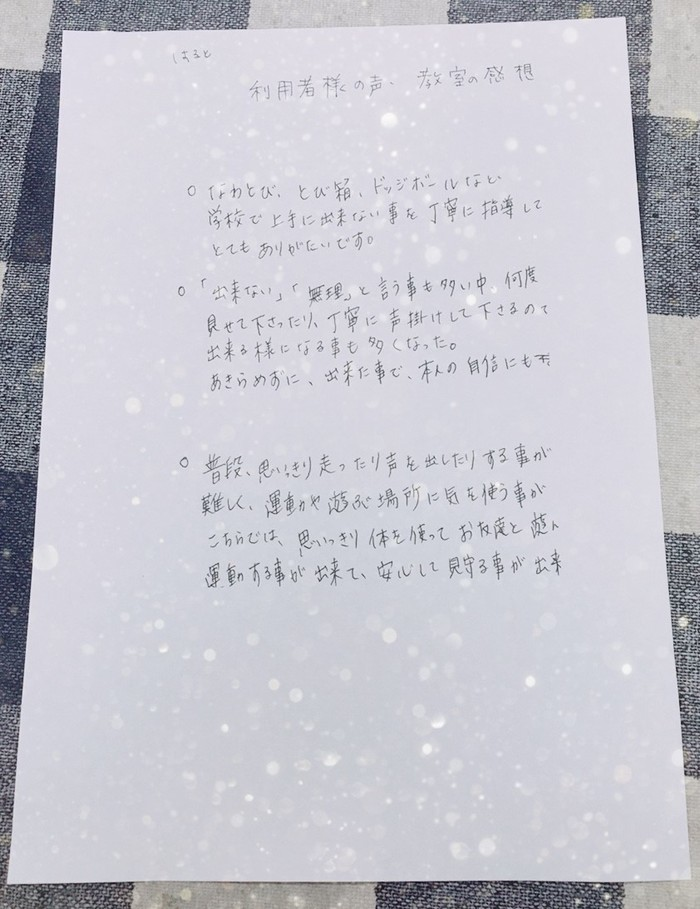 はると
利用者様の声、教室の感想
○ なわとび、とび箱、ドッジボールなど
学校で上手に出来ない事を丁寧に指導して
とてもありがたいです。
○ 「出来ない」「無理」と言う事も多い中、何度
見せて下さったり、丁寧に声掛けして下さるので
出来る様になる事も多くなった。
あきらめずに、出来た事で、本人の自信にも
○ 普段、思いっきり走ったり声を出したりする事が
難しく、運動や遊ぶ場所に気を使う事が
こちらでは、思いっきり体を使ってお友達と遊ん
運動する事が出来て、安心して見守る事が出来